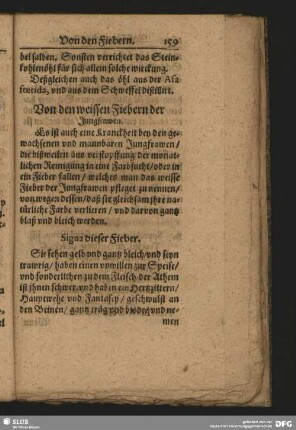 Von den Fiebern. 159
bel salben. Sonsten verrichtet das Stein-
kohlenöhl für sich allein solche wirckung.
Deßgleichen auch das öhl aus der Asa
foetida, vnd aus dem Schweffel distillirt.
Von den weissen Fiebern der
Jungfrawen.
Es ist auch eine Kranckheit bey den ge-
wachsenen vnd mannbaren Jungfrawen/
die bißweilen aus verstopffung der monat-
lichen Reinigung in eine Farbsucht/ oder in
ein Fieber fallen/ welches man das weisse
Fieber der Jungfrawen pfleget zu nennen/
von wegen dessen/ daß sie gleichsam ihre na-
türliche Farbe verlieren/ vnd darvon gantz
blaß vnd bleich werden.
Signa dieser Fieber.
Sie sehen gelb vnd gantz bleich/ vnd seyn
trawrig/ haben einen vnwillen zur Speise/
vnd sonderlichen zu dem Fleisch/ der Athem
ist ihnen schwer/ vnd haben ein Hertzzittern/
Hauptwehe vnd Fantasey/ geschwulst an
den Beinen/ gantz träg vnd blöde/ vnd ne-
men
SLUB
Wir führen Wissen.
gefördert von der
Deutschen Forschungsgemeinschaft
DFG